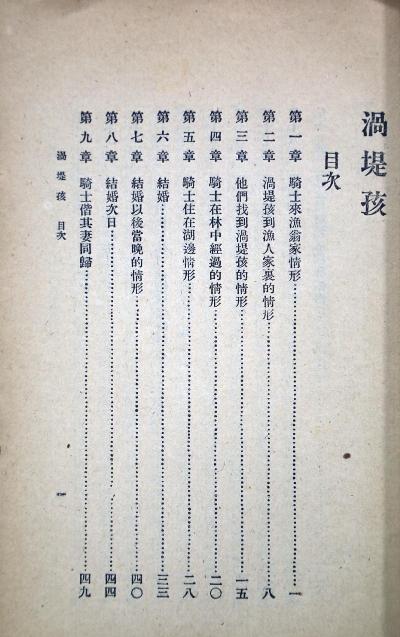 渦堤孩
目次
第一章 騎士來漁翁家情形……一
第二章 渦堤孩到漁人家裏的情形……八
第三章 他們找到渦堤孩的情形……一五
第四章 騎士在林中經過的情形……二〇
第五章 騎士住在湖邊情形……二八
第六章 結婚……三三
第七章 結婚以後當晚的情形……四〇
第八章 結婚次日……四四
第九章 騎士偕其妻同歸……四九
渦堤孩 目次 一